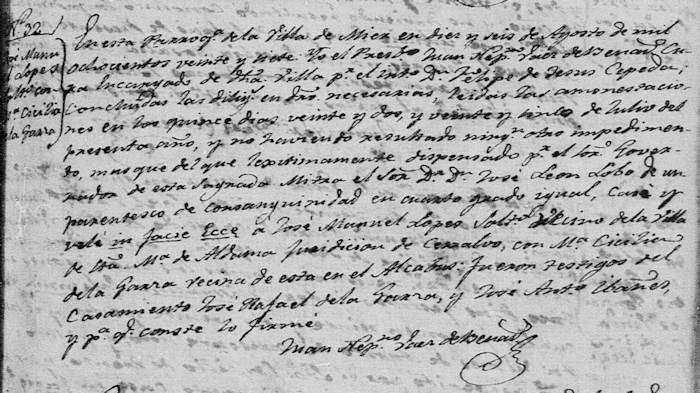 N.º 32
José Manuel
Lopes
con
M.ª Cicilia
de la Garza
En esta Parroq.ª de la Villa de Mier en diez y seis de Agosto de mil
ochocientos veinte y siete. Yo el Presb.º Juan Nep.no Saes de Benav.s Cu
ra Encargado de dha Villa p.r el Dn Felipe de Jesus Cepeda;
Concluidas las dilig.s en dro. necesarias, leidas las amonestacio
nes en los quince dias veinte y dos, y veinte y cinco de Julio del
presente año, y no haviendo resultado ning.n otro impedimen
to, mas que del que lexitimamente dispensado p.r el Sor. Gover
nador de esta Sagrada Mitra el Sor. Dn. Dr. José Leon Lobo de un
parentesco de consanguinidad en cuarto grado igual, Casé y
velé in facie Ecce á José Manuel Lopes Solt.º vecino de la Villa
de Sta. M.ª de Aldama Juridicion de Cerralvo, con M.ª Cicilia
de la Garza vecina de esta en el Alcabus. fueron testigos del
Casamiento José Rafael de la Garza, y José Ant.º Ibañes,
y p.ª q.e conste lo firmé
Juan Nep.no Saes de Benav.s